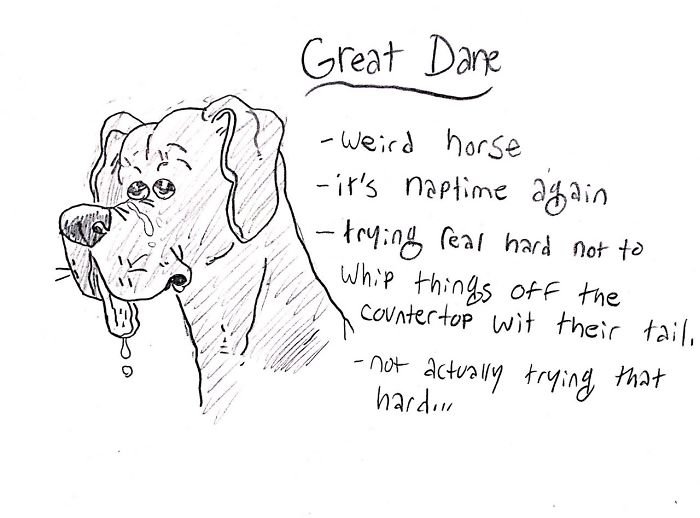 Great Dane
- weird horse
- it's naptime again
- trying real hard not to
whip things off the
countertop wit their tail.
- not actually trying that
hard...